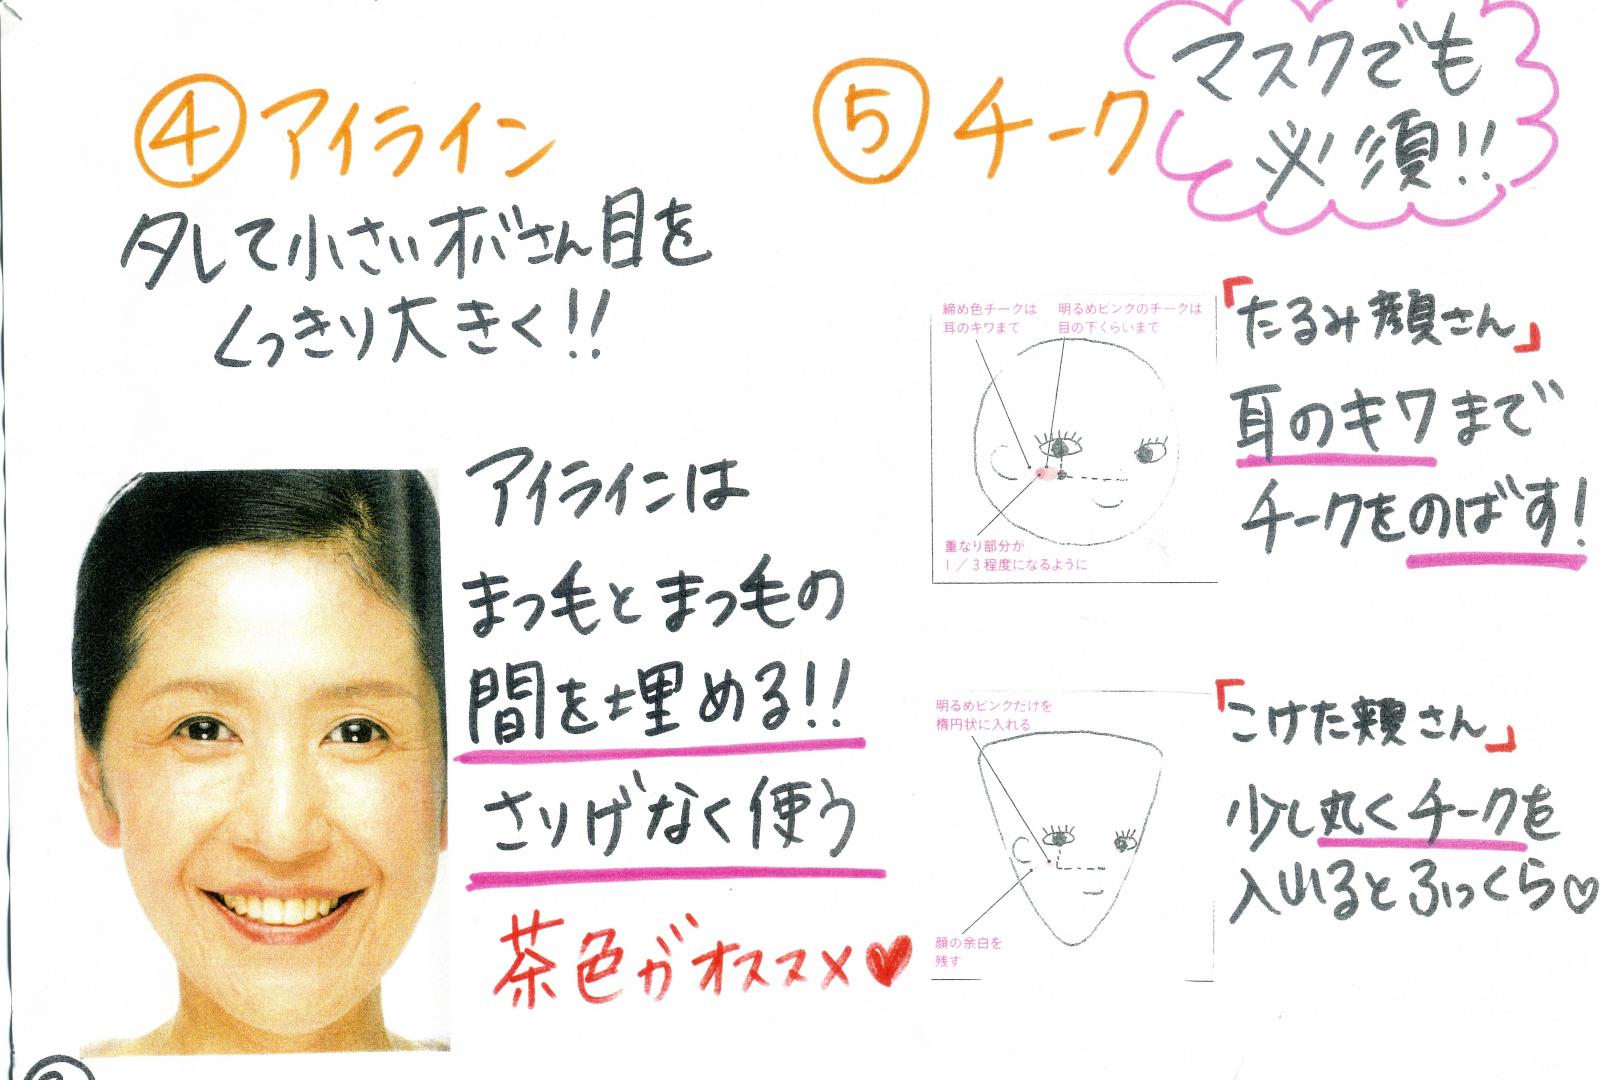 ④アイライン
夕して小さいオバさん目を
くっきり大きく!!
アイラインは
まつ毛とまつ毛の
間を埋める!!
さりげなく使う
茶色がオススメ♥
⑤チーク
マスクでも
必須!!
締め色チークは
耳のキワまで
明るめピンクのチークは
目の下くらいまで
重なり部分が
1/3程度になるように
「たるみ顔さん」
耳のキワまで
チークをのばす!
明るめピンクだけを
楕円状に入れる
顔の余白を
残す
「こけた頬さん」
少し丸くチークを
入れるとふっくら♡